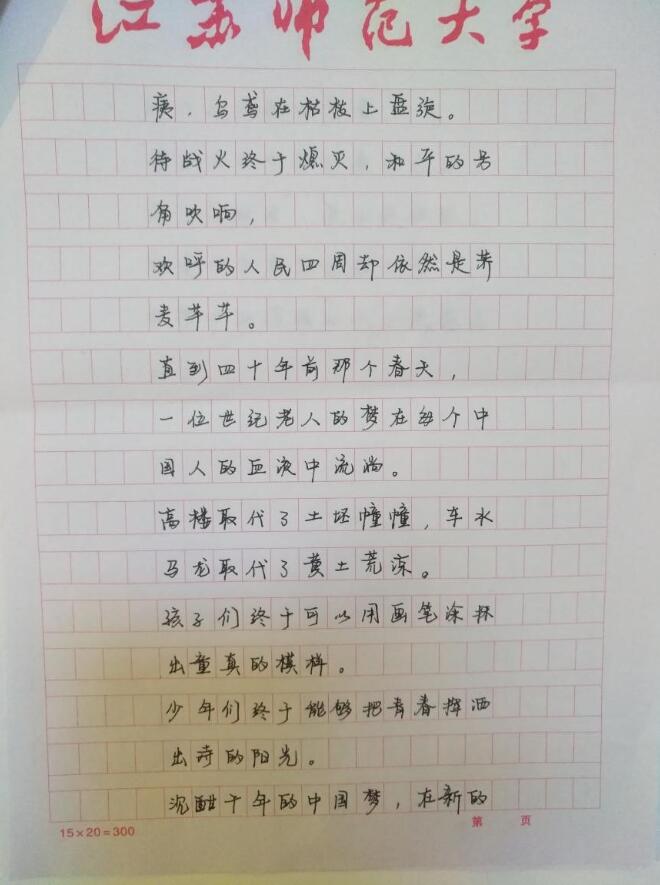 江苏师范大学
痍，乌鸢在枯枝上盘旋。
待战火终于熄灭，和平的号
角吹响，
欢呼的人民四周却依然是荞
麦芊芊。
直到四十年前那个春天，
一位世纪老人的梦在每个中
国人的血液中流淌。
高楼取代了土坯幢幢，车水
马龙取代了黄土荒凉。
孩子们终于可以用画笔涂抹
出童真的模样。
少年们终于能够把青春挥洒
出诗的阳光。
沉酣千年的中国梦，在新的
15×20=300
第 页